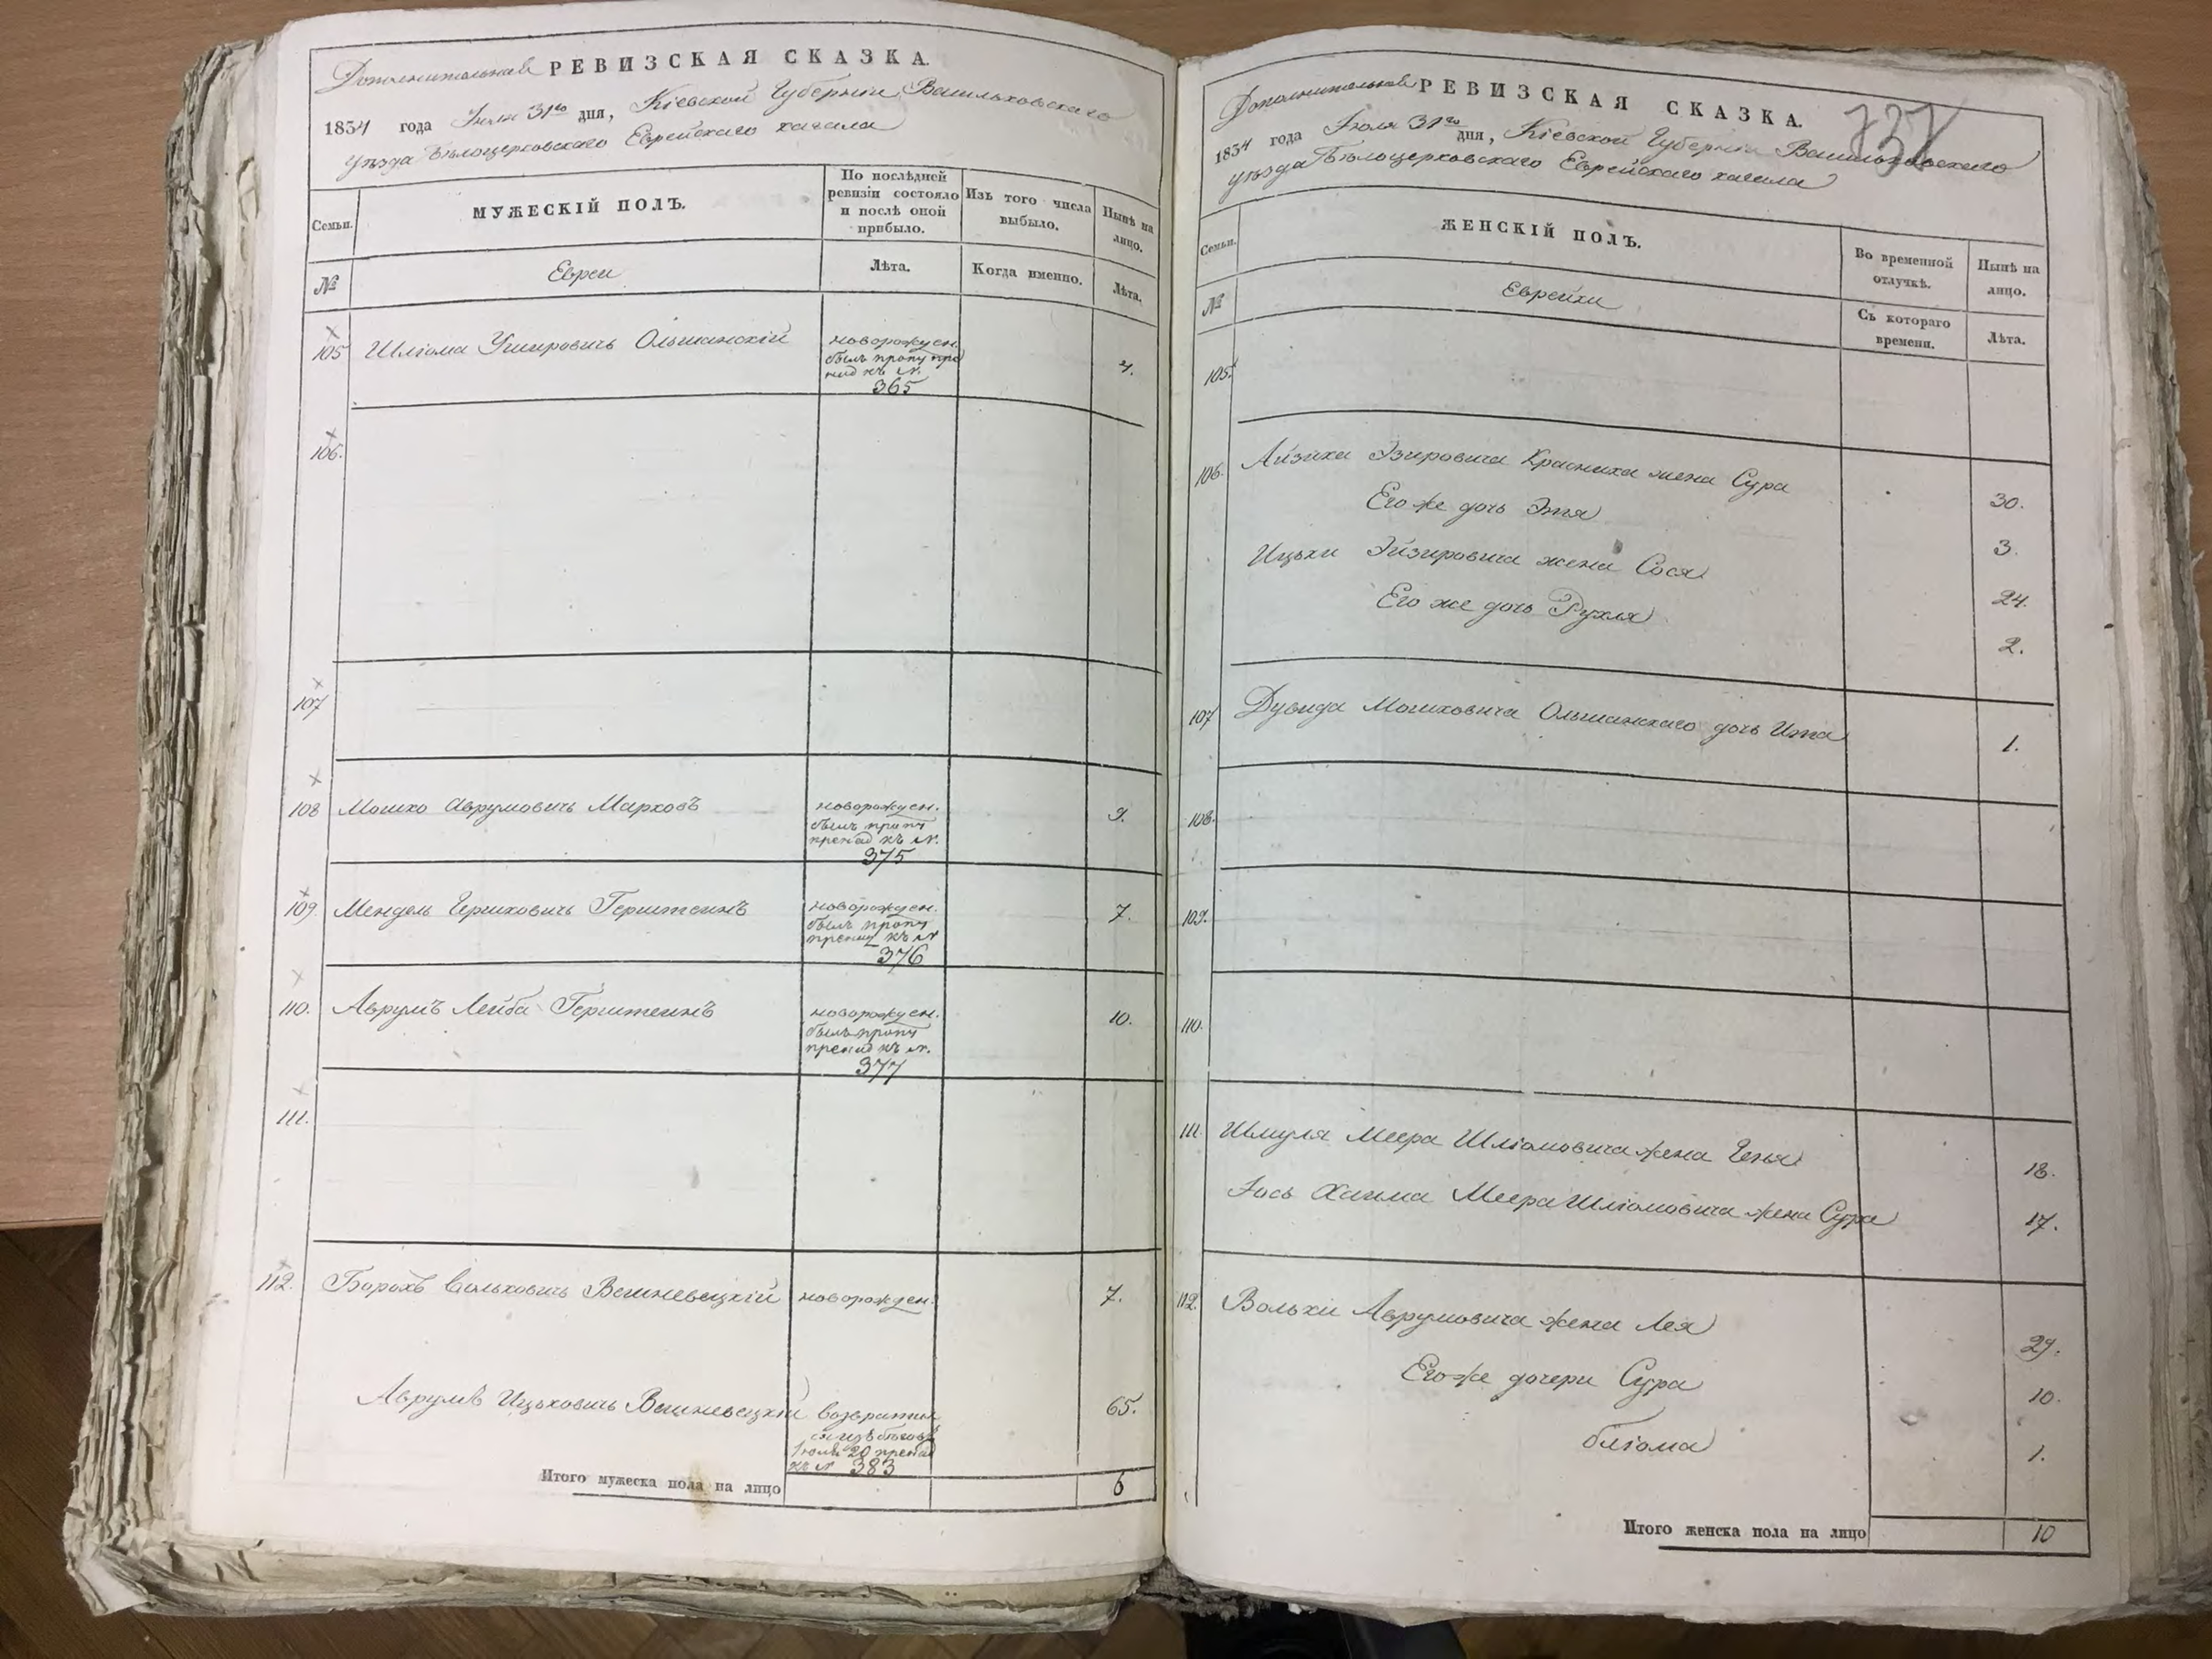 Дополнительная РЕВИЗСКАЯ СКАЗКА.
1834 года Июля 31го дня, Кіевской Губерніи Васильковскаго
уѣзда Бѣлоцерковскаго Еврейскаго кагала
Семьи.
МУЖЕСКІЙ ПОЛЪ.
По послѣдней
ревизіи состояло
и послѣ оной
прибыло.
Изъ того числа
выбыло.
Нынѣ на
лицо.
№
Евреи
Лѣта.
Когда именно.
Лѣта.
105 Шліома Ушировичъ Ольшанскій новорожден. 4.
былъ пропу
къ №.
365
106.
107
108 Мошко Аврумовичъ Марховъ новорожден. 9.
былъ пропу
къ №.
375
109. Мендель Гершковичъ Герштеинъ новорожден. 7.
былъ пропу
къ №
376
110. Аврумъ Лейба Герштеинъ новорожден. 10.
былъ пропу
къ №.
377
111.
112. Борохъ Вольковичъ Вешневецкій новорожден. 7.
Аврумъ Ицьковичъ Вешневецкій возвратил 65.
ся изъ бѣговъ
Июля 20
къ № 383
Итого мужеска пола на лицо 6
Дополнительная РЕВИЗСКАЯ СКАЗКА.
737
1834 года Июля 31го дня, Кіевской Губерніи Васильковскаго
уѣзда Бѣлоцерковскаго Еврейскаго кагала
Семьи.
ЖЕНСКІЙ ПОЛЪ.
Во временной
отлучкѣ.
Нынѣ на
лицо.
№
Еврейки
Съ котораго
времени.
Лѣта.
105.
106. Айзика Эзировича Красника жена Сура 30.
Его же дочь Этя 3.
Ицьки Эйзировича жена Сося 24.
Его же дочь Рухля 2.
107 Дувида Мошковича Ольшанскаго дочь Ита 1.
108.
109.
110.
111. Шмуля Меера Шліомовича жена Геня 18.
Іось Хаима Меера Шліомовича жена Сура 17.
112. Вольки Аврумовича жена Лея 29.
Его же дочери Сура 10.
бліома 1.
Итого женска пола на лицо 10